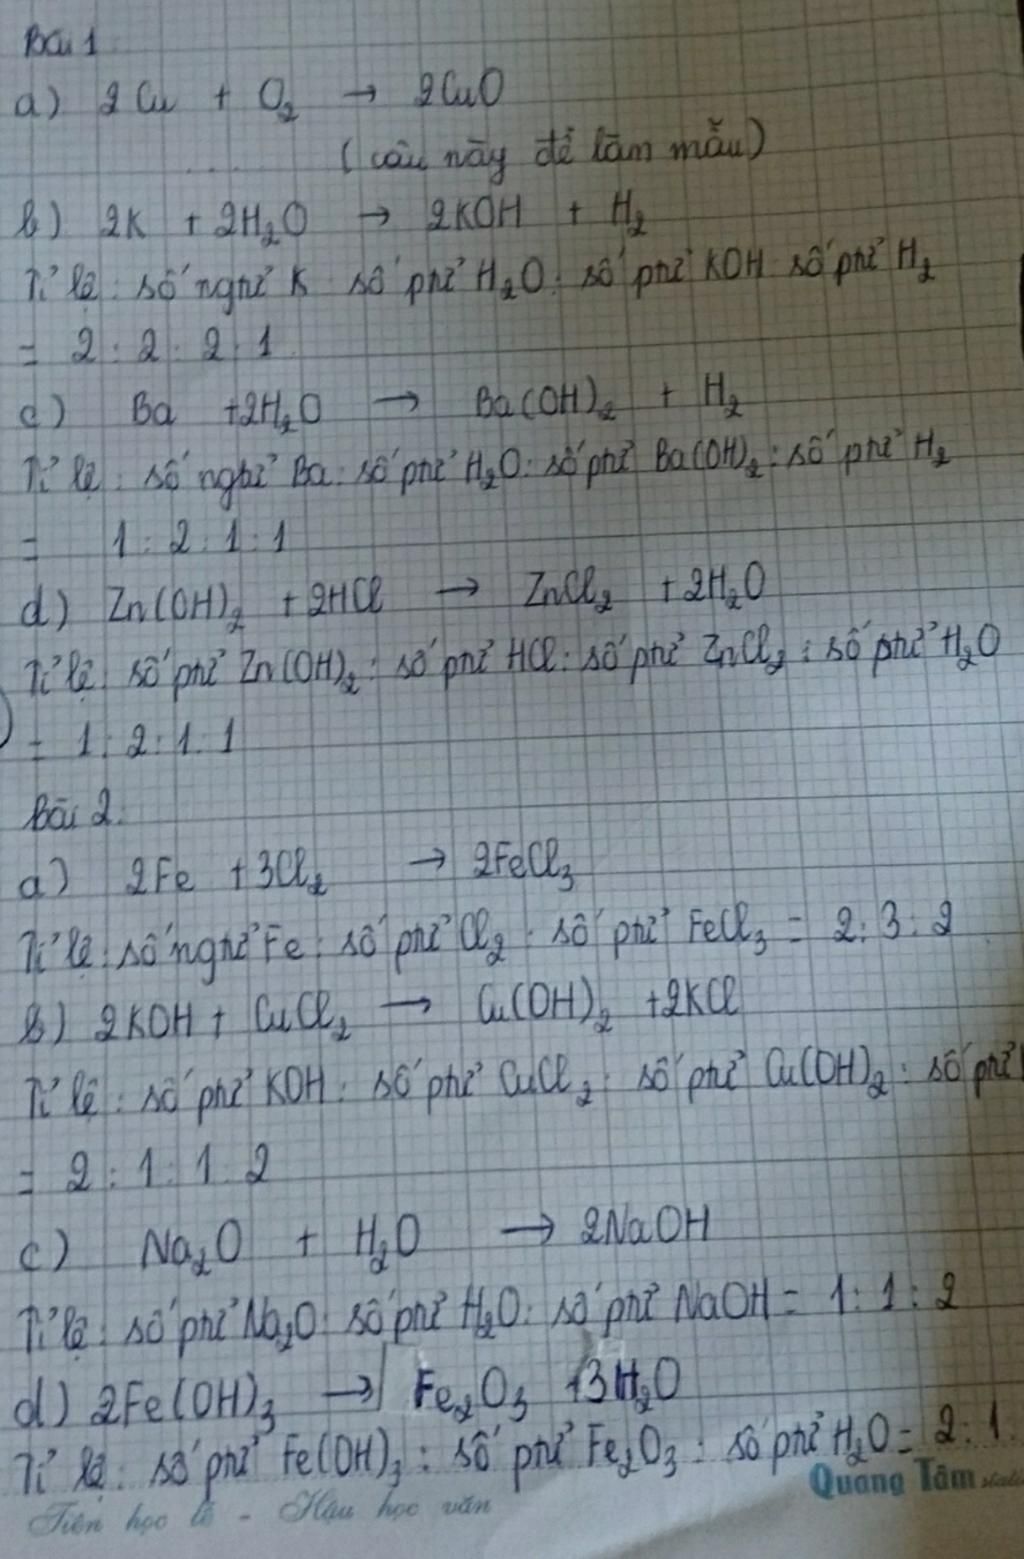 Bài 1
a) 2Cu + O₂ → 2CuO
(câu này để làm mẫu)
b) 2K + 2H₂O → 2KOH + H₂
Tỉ lệ: số nghtử K: số phtử H₂O: số phtử KOH: số phtử H₂
= 2:2:2:1
c) Ba +2H₂O → Ba(OH)₂ + H₂
Tỉ lệ: số nghtử Ba: số phtử H₂O: số phtử Ba(OH)₂: số phtử H₂
= 1:2:1:1
d) Zn(OH)₂ +2HCl → ZnCl₂ +2H₂O
Tỉ lệ: số phtử Zn(OH)₂: số phtử HCl: số phtử ZnCl₂: số phtử H₂O
= 1:2:1:1
Bài 2:
a) 2Fe +3Cl₂ → 2FeCl₃
Tỉ lệ: số nghtử Fe: số phtử Cl₂: số phtử FeCl₃ = 2:3:2
b) 2KOH + CuCl₂ → Cu(OH)₂ +2KCl
Tỉ lệ: số phtử KOH: số phtử CuCl₂: số phtử Cu(OH)₂: số phtử
= 2:1:1:2
c) Na₂O + H₂O → 2NaOH
Tỉ lệ: số phtử Na₂O: số phtử H₂O: số phtử NaOH = 1:1:2
d) 2Fe(OH)₃ → Fe₂O₃ +3H₂O
Tỉ lệ: số phtử Fe(OH)₃: số phtử Fe₂O₃: số phtử H₂O = 2:1:
Quang Tâm
Tiên học lễ - Hậu học văn